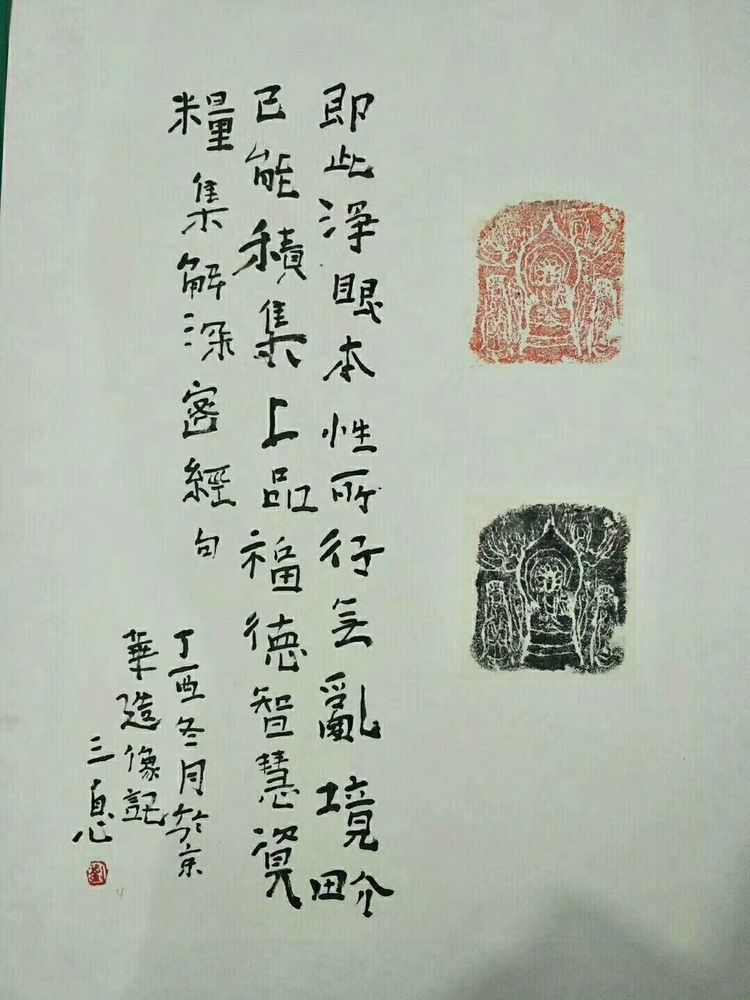 即此淨眼本性所行无亂境畍
已能積集上品福德智慧資
糧集解深密經句
丁酉冬月於京
華造像記
三息